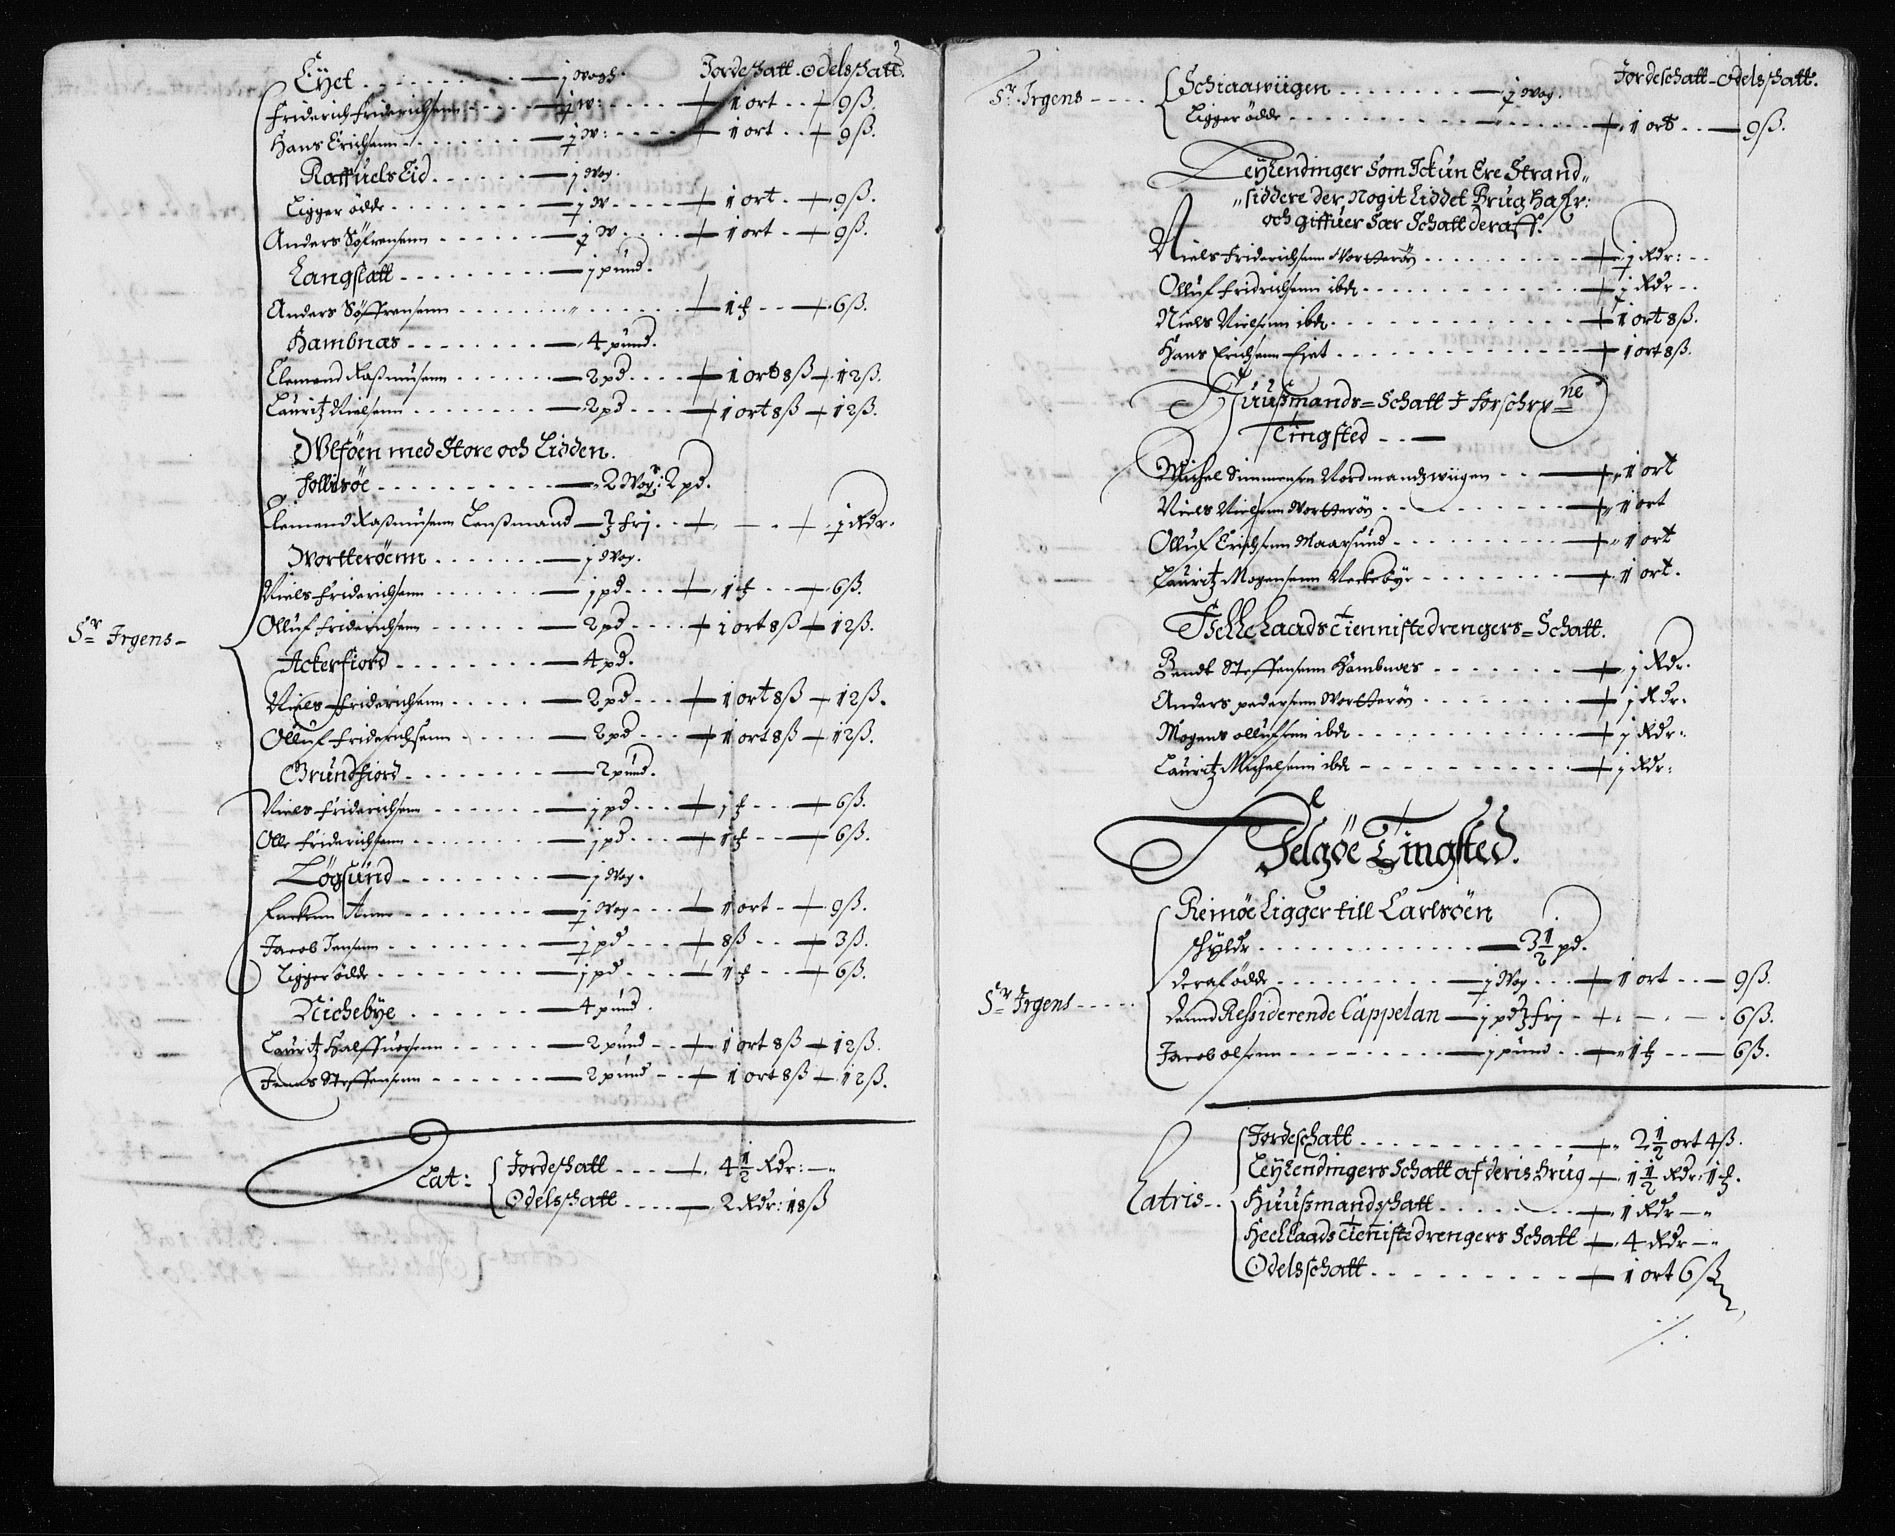 Eyet - - - - j wogh. Jordeschatt. Odelsschatt.
Friderich Friderichsenn - - - ½ w: - - - 1 ort - - 9ß.
Hans Erichsenn - - - ½ w: - - - 1 ort - - 9ß.
Raffuels Eid - - - j wog.
Ligger ödde - - - ½ w - - - 1 ort - - 9ß.
Anders Söfrensenn - - - ½ w - - - 1 ort - - 9ß.
Langslatt - - - j pund.
Anders Söffrensenn - - - " - - - 1 ꝑ - - 6ß.
Hambnæs - - - 4 pund.
Clemend Rasmusenn - - - 2 pd - - - 1 ort 8ß - 12ß.
Lauritz Nielsenn - - - 2 pd - - - 1 ort 8ß - 12ß.
Wlföen med Store och Lidden.
Follesöe - - - 2 Wog: 2 pd.
Clemend Rasmusenn Lensmand - ꝫ fri - - - - ½ Rdr.
Wortteröenn - - - j Wog.
Niels Friderichsenn - - - j pd - - - 1 - - 6ß.
Sr Irgens - Olluf Friderichsenn - - - 2 pd - - - 1 ort 8ß - 12ß.
Ackerfiord - - - 4 pd.
Niels Friderichsenn - - - 2 pd - - - 1 ort 8ß - 12ß.
Olluf Friderichsenn - - - 2 pd - - - 1 ort 8ß - 12ß.
Grundfiord - - - 2 pund.
Niels Friderichsenn - - - j pd - - - 1 - - 6ß.
Olle Friderichsenn - - - j pd - - - 1 - - 6ß.
Lögsund - - - j Wog.
Enckenn Anne - - - ½ Wog - - - 1 ort - - 9ß.
Jacob Jensenn - - - ½ pd - - - 8ß - - 3ß.
Ligger ödde - - - j pd - - - 1 - - 6ß.
Nichebye - - - 4 pund.
Lauritz Halffuorsenn - - - 2 pund - - 1 ort 8ß - 12ß.
Jenns Steffensenn - - - 2 pund - - 1 ort 8ß - 12ß.
Lat: Jordeschatt - - - 4½ Rdr: - "
Odelsschatt - - - 2 Rdr: 18ß
Jordeschatt - Odelsschatt.
Sr. Irgens - - - Schiaawiigen - - - ½ Wog.
Ligger ödde - - - 1 ort - - 9ß.
Leylendinger Som Ickun Ere Strand"
"siddere der Nogit Liddet Brug hafr:
och giffuer Sær Schatt deraff.
Niels Friderichsenn Wortteröy - - - ½ Rdr: - -
Olluf Fridrichsenn ibd - - - ½ Rdr - -
Niels Nielsenn ibd - - - 1 ort 8ß.
Hans Erichsenn Eyet - - - 1 ort 8ß.
Huusmands=Schatt J Forschrne
Tingsted - - -
Michel Simmensen Nordmandzwiigen - - - 1 ort
Niels Nielsenn Wortteröy - - - 1 ort
Olluf Erichsenn Maarsund - - - 1 ort
Lauritz Mogensenn Neckeböye - - - 1 ort.
Helle Laads Tiennistedrengers=Schatt.
Bendt Steffensenn Hambnæs - - - j Rdr.
Anders pedersenn Wortteröy - - - j Rdr.
Mogens ollufsenn ibd - - - j Rdr:
Lauritz Michelsenn ibd - - - j Rdr:
Helgöe Tingsted.
Reinöe Ligger till Carlsöen
schyldr - - - 3½ pd.
deraf ödde - - - ½ Wog - - - 1 ort - - 9ß.
Sr Irgens - - - dennd Ressiderende Cappelan - j pd ꝫ fri - - - 6ß.
Jacob olsenn - - - j pund - - - 1 - - 6ß.
Latris - - Jordeschatt - - - 2½ ort 4ß.
Leylendingers Schatt af deris brug - 1½ Rdr: 1
Huusmandsschatt - - - 1 Rdr - "
Heellaads tienistedrengers Schatt - 4 Rdr - "
Odelsschatt - - - 1 ort 6ß